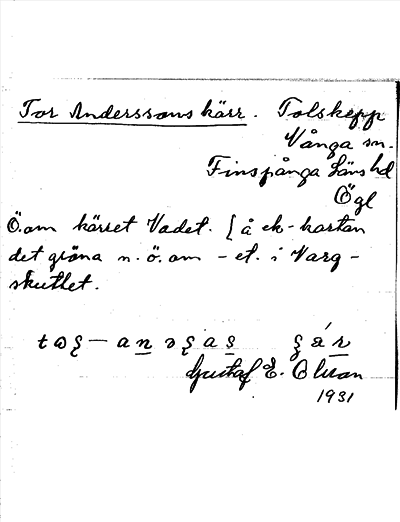 Tor Anderssons kärr. Tolskepp
Vånga sn.
Finspånga läns hd
Ögl
Ö. om kärret Vadet. [å ek-kartan
det gröna n. ö. om - et. i Varg-
skutlet.
Gustaf E. Olsson
1931